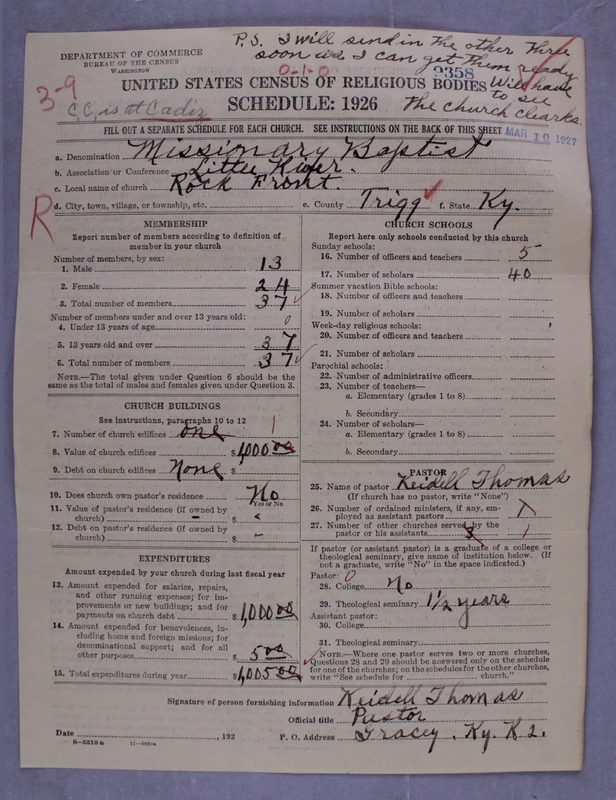 P.S. I will send in the other three
soon as I can get them ready
Will have
to see
the church clearks.
DEPARTMENT OF COMMERCE
BUREAU OF THE CENSUS
WASHINGTON
0-1-0
2358
3-9
C.C. is at Cadiz
UNITED STATES CENSUS OF RELIGIOUS BODIES
SCHEDULE: 1926
FILL OUT A SEPARATE SCHEDULE FOR EACH CHURCH. SEE INSTRUCTIONS ON THE BACK OF THIS SHEET
MAR 10 1927
a. Denomination Missionary Baptist
b. Association or Conference Little River.
c. Local name of church Rock Front.
d. City, town, village, or township, etc. e. County Trigg f. State Ky.
R
MEMBERSHIP
Report number of members according to definition of
member in your church
Number of members, by sex:
1. Male 13
2. Female 24
3. Total number of members 37
Number of members under and over 13 years old:
4. Under 13 years of age 0
5. 13 years old and over 37
6. Total number of members 37
NOTE.—The total given under Question 6 should be the
same as the total of males and females given under Question 3.
CHURCH BUILDINGS
See instructions, paragraphs 10 to 12
7. Number of church edifices one 1
8. Value of church edifices $1,000 00
9. Debt on church edifices None $
10. Does church own pastor's residence No
Yes or No
11. Value of pastor's residence (if owned by
church) – $
12. Debt on pastor's residence (if owned by
church) $ –
EXPENDITURES
Amount expended by your church during last fiscal year
13. Amount expended for salaries, repairs,
and other running expenses; for im-
provements or new buildings; and for
payments on church debt $1,000 00
14. Amount expended for benevolences, in-
cluding home and foreign missions; for
denominational support; and for all
other purposes $ 5 00
15. Total expenditures during year $1,005 00
CHURCH SCHOOLS
Report here only schools conducted by this church
Sunday schools:
16. Number of officers and teachers 5
17. Number of scholars 40
Summer vacation Bible schools:
18. Number of officers and teachers
19. Number of scholars
Week-day religious schools:
20. Number of officers and teachers
21. Number of scholars
Parochial schools:
22. Number of administrative officers
23. Number of teachers—
a. Elementary (grades 1 to 8)
b. Secondary
24. Number of scholars—
a. Elementary (grades 1 to 8)
b. Secondary
PASTOR
25. Name of pastor Keidell Thomas
(If church has no pastor, write "None")
26. Number of ordained ministers, if any, em-
ployed as assistant pastors 1
27. Number of other churches served by the
pastor or his assistants 3 1
If pastor (or assistant pastor) is a graduate of a college or
theological seminary, give name of institution below. (If
not a graduate, write "No" in the space indicated.)
Pastor: 0
28. College No
29. Theological seminary 1 1/2 years
Assistant pastor:
30. College
31. Theological seminary
NOTE.—Where one pastor serves two or more churches,
Questions 28 and 29 should be answered only on the schedule
for one of the churches; on the schedules for the other churches,
write "See schedule for church."
Signature of person furnishing information Keidell Thomas
Official title Pastor
Date , 192 P. O. Address Tracey. Ky. R 2.
8-5318a 11-9050a